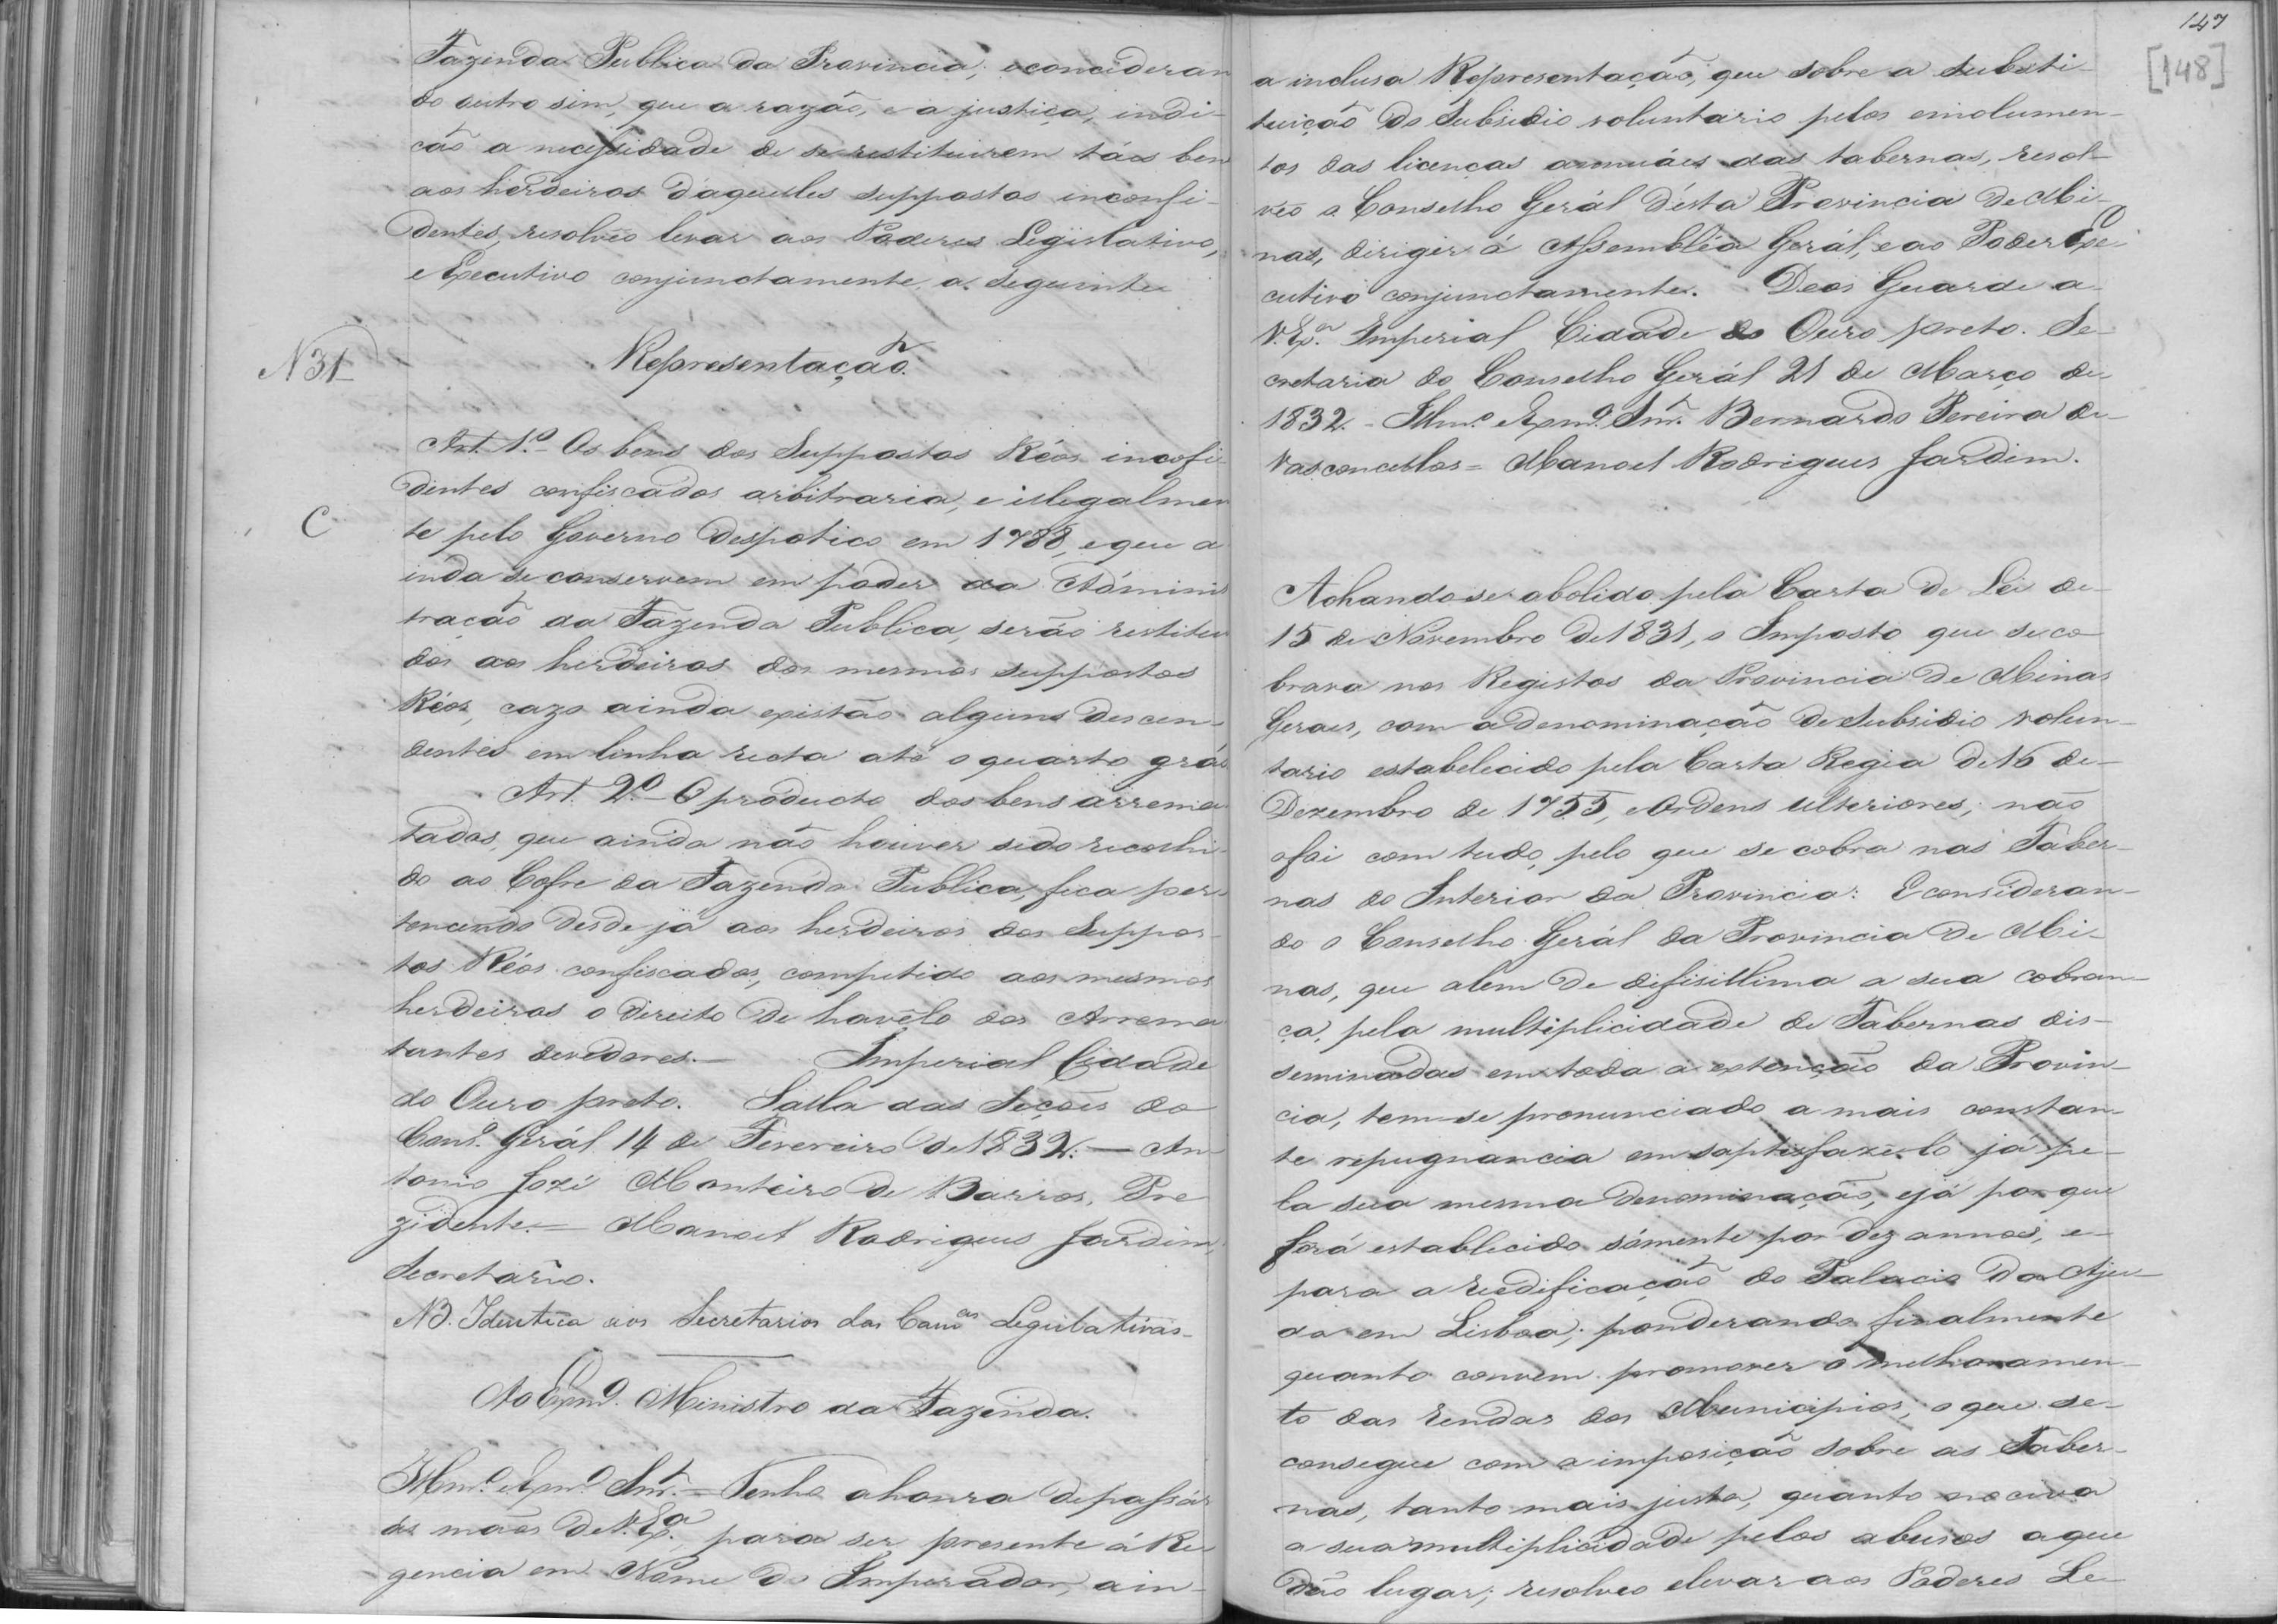 Fazenda Publica da Provincia; econcideran
do outro sim, que a razão, e a justiça, indi-
cão a necessidade de se restituirem táes bens
aos herdeiros d'aquelles suppostos inconfi-
dentes, resolvêo levar aos Poderes Legislativo,
e Executivo conjunctamente, a seguinte
N31
Representação.
Art. 1.º Os bens dos Suppostos Réos incofi-
dentes confiscados arbitraria, e illegalmen
C
te pelo Governo Despotico em 1788, eque a
inda se conservem em poder da Adminis
tração da Fazenda Publica, serão restitui
dos aos herdeiros dos mesmos suppostos
Réos, cazo ainda existão alguns descen-
dentes em linha recta até o quarto gráo
Art. 2.º O producto dos bens arrema
tados, que ainda não houver sido recolhi-
do ao Cofre da Fazenda Publica, fica per-
tencendo desde já aos herdeiros dos Suppos-
tos Réos confiscados, competido aos mesmos
herdeiros o direito de havêlo dos Arrema
tantes devedores.— Imperial Cidade
do Ouro preto. Salla das Seçoes do
Cons.º Gerál 14 de Fevereiro de 1832.— An-
tonio Jozé Monteiro de Barros, Pre
zidente.— Manoel Rodrigues Jardim,
Secretario.
NB. Identica aos Secretarios das Cam.as Legislativas.
Ao Exm.º Ministro da Fazenda.
Illm.º eExm.º Snr.= Tenho ahonra depassár
ás mãos de V. Ex.ª, para ser presente á Re
gencia em Nome do Imperador, a in-
147
[148]
a inclusa Representação, que sobre a substi-
tuição do Subsidio voluntario pelos emolumen-
tos das licenças annuáes das tabernas, resol-
vêo o Conselho Gerál d'esta Provincia de Mi-
nas, dirigir á Assembléa Gerál, e ao Poder Exe
cutivo conjunctamente. Deos Guarde a
V. Ex.ª Imperial Cidade do Ouro preto. Se-
cretaria do Conselho Gerál 21 de Março de
1832.- Illm.º eExm.º Snr. Bernardo Pereira de
Vasconcellos= Manoel Rodrigues Jardim.
Achando-se abolido pela Carta de Lei de
15 de Novembro de 1831, o Imposto que se co-
brava nos Registos da Provincia de Minas
Geraes, com a denominação de Subsidio volun-
tario establecido pela Carta Regia de 16 de
Dezembro de 1755, eOrdens ulteriores; não
ofoi com tudo pelo que se cobra nas Taber-
nas do Interior da Provincia: E consideran-
do o Conselho Gerál da Provincia de Mi-
nas, que alem de defisillima a sua cobran-
ça, pela multiplicidade de Tabernas dis-
seminadas em toda a extenção da Provin-
cia, tem-se pronunciado a mais constan-
te repugnancia em saptisfaze-lo já pe-
la sua mesma denominação, ejá por que
forá establecido sómente por dez annos, e
para a reedificação do Palacio da Aju-
da em Lisboa; ponderando finalmente
quanto convem promover o melhoramen-
to das rendas dos Municipios, o que se-
consegue com a imposição sobre as Taber-
nas, tanto mais justa, quanto nociva
a sua multiplicidade pelos abusos aque
dão lugar; resolveo elevar aos Poderes Le-